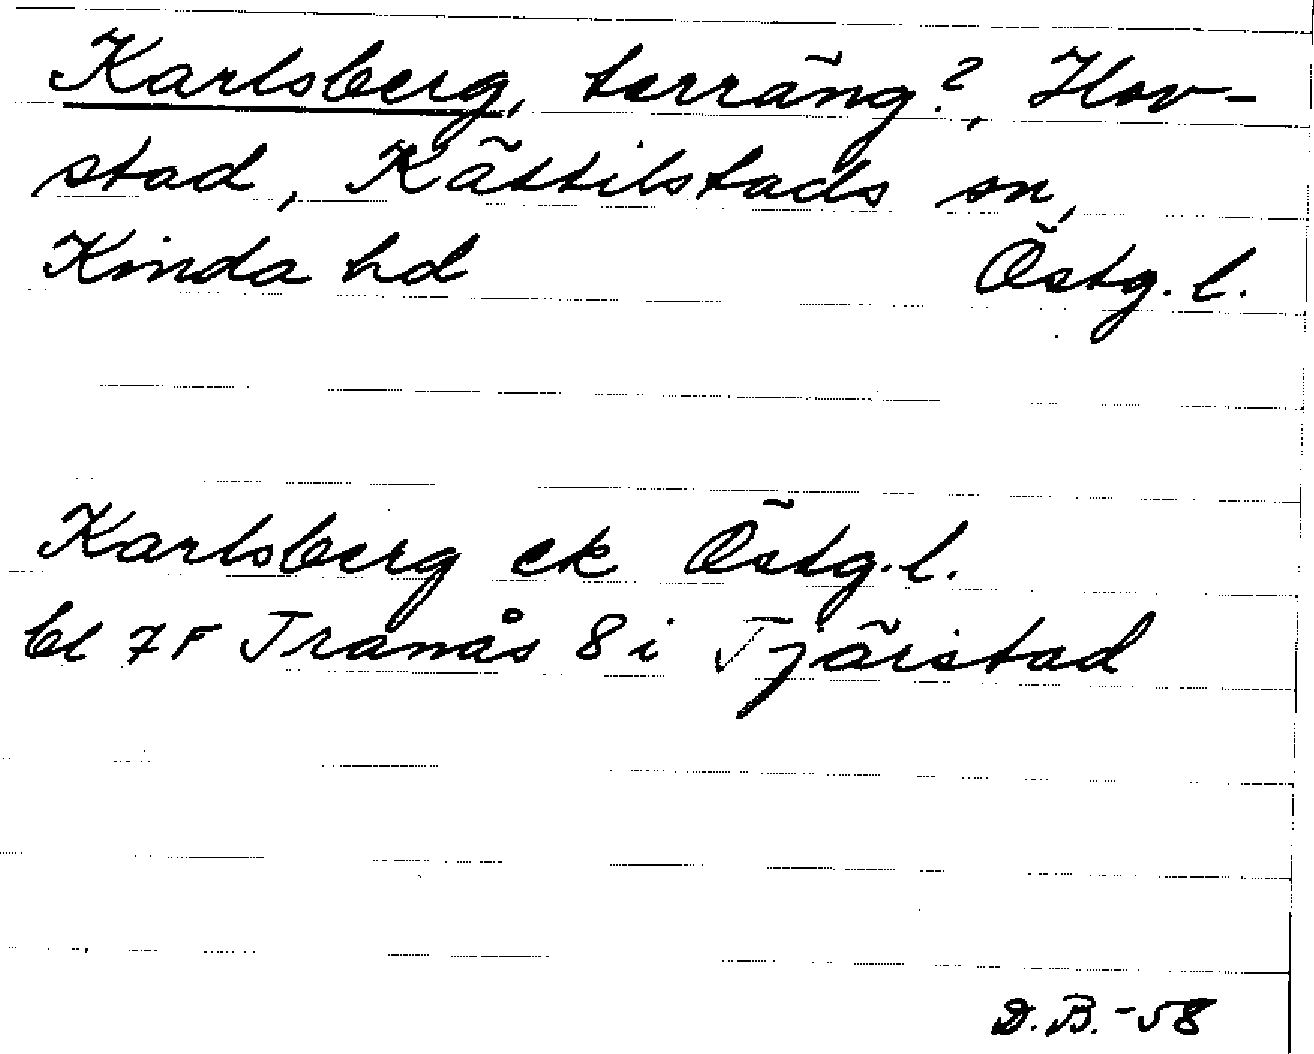 Karlsberg, terräng?, Hov-
stad, Kättilstads sn,
Kinda hd Östg. l.
Karlsberg ek Östg. l.
bl 7F Tranås 8 i Tjärstad
D. B. -58